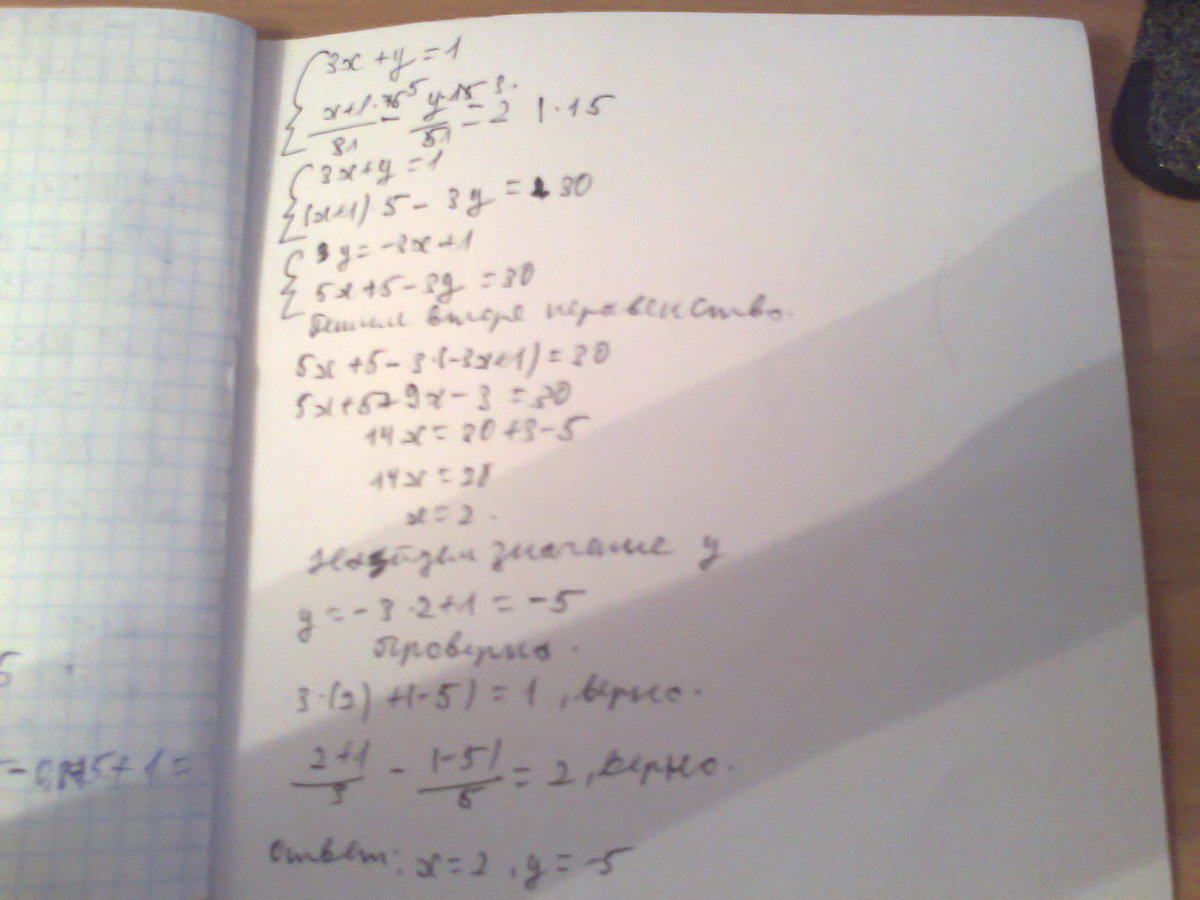 3x + y = 1
x+1·15 5 / 31 - y·15 3 / 51 = 2 | · 15
3x + y = 1
(x+1)·5 - 3y = 30
y = -3x+1
5x+5-3y = 30
Решим второе неравенство.
5x+5-3(-3x+1) = 30
5x+5+9x-3 = 30
14x = 30+3-5
14x = 28
x = 2.
Найдем значение y
y = -3·2+1 = -5
Проверно.
3·(2)+(-5) = 1, верно.
2+1 / 3 - (-5) / 5 = 2, верно.
Ответ: x = 2, y = -5
5
5+1 =